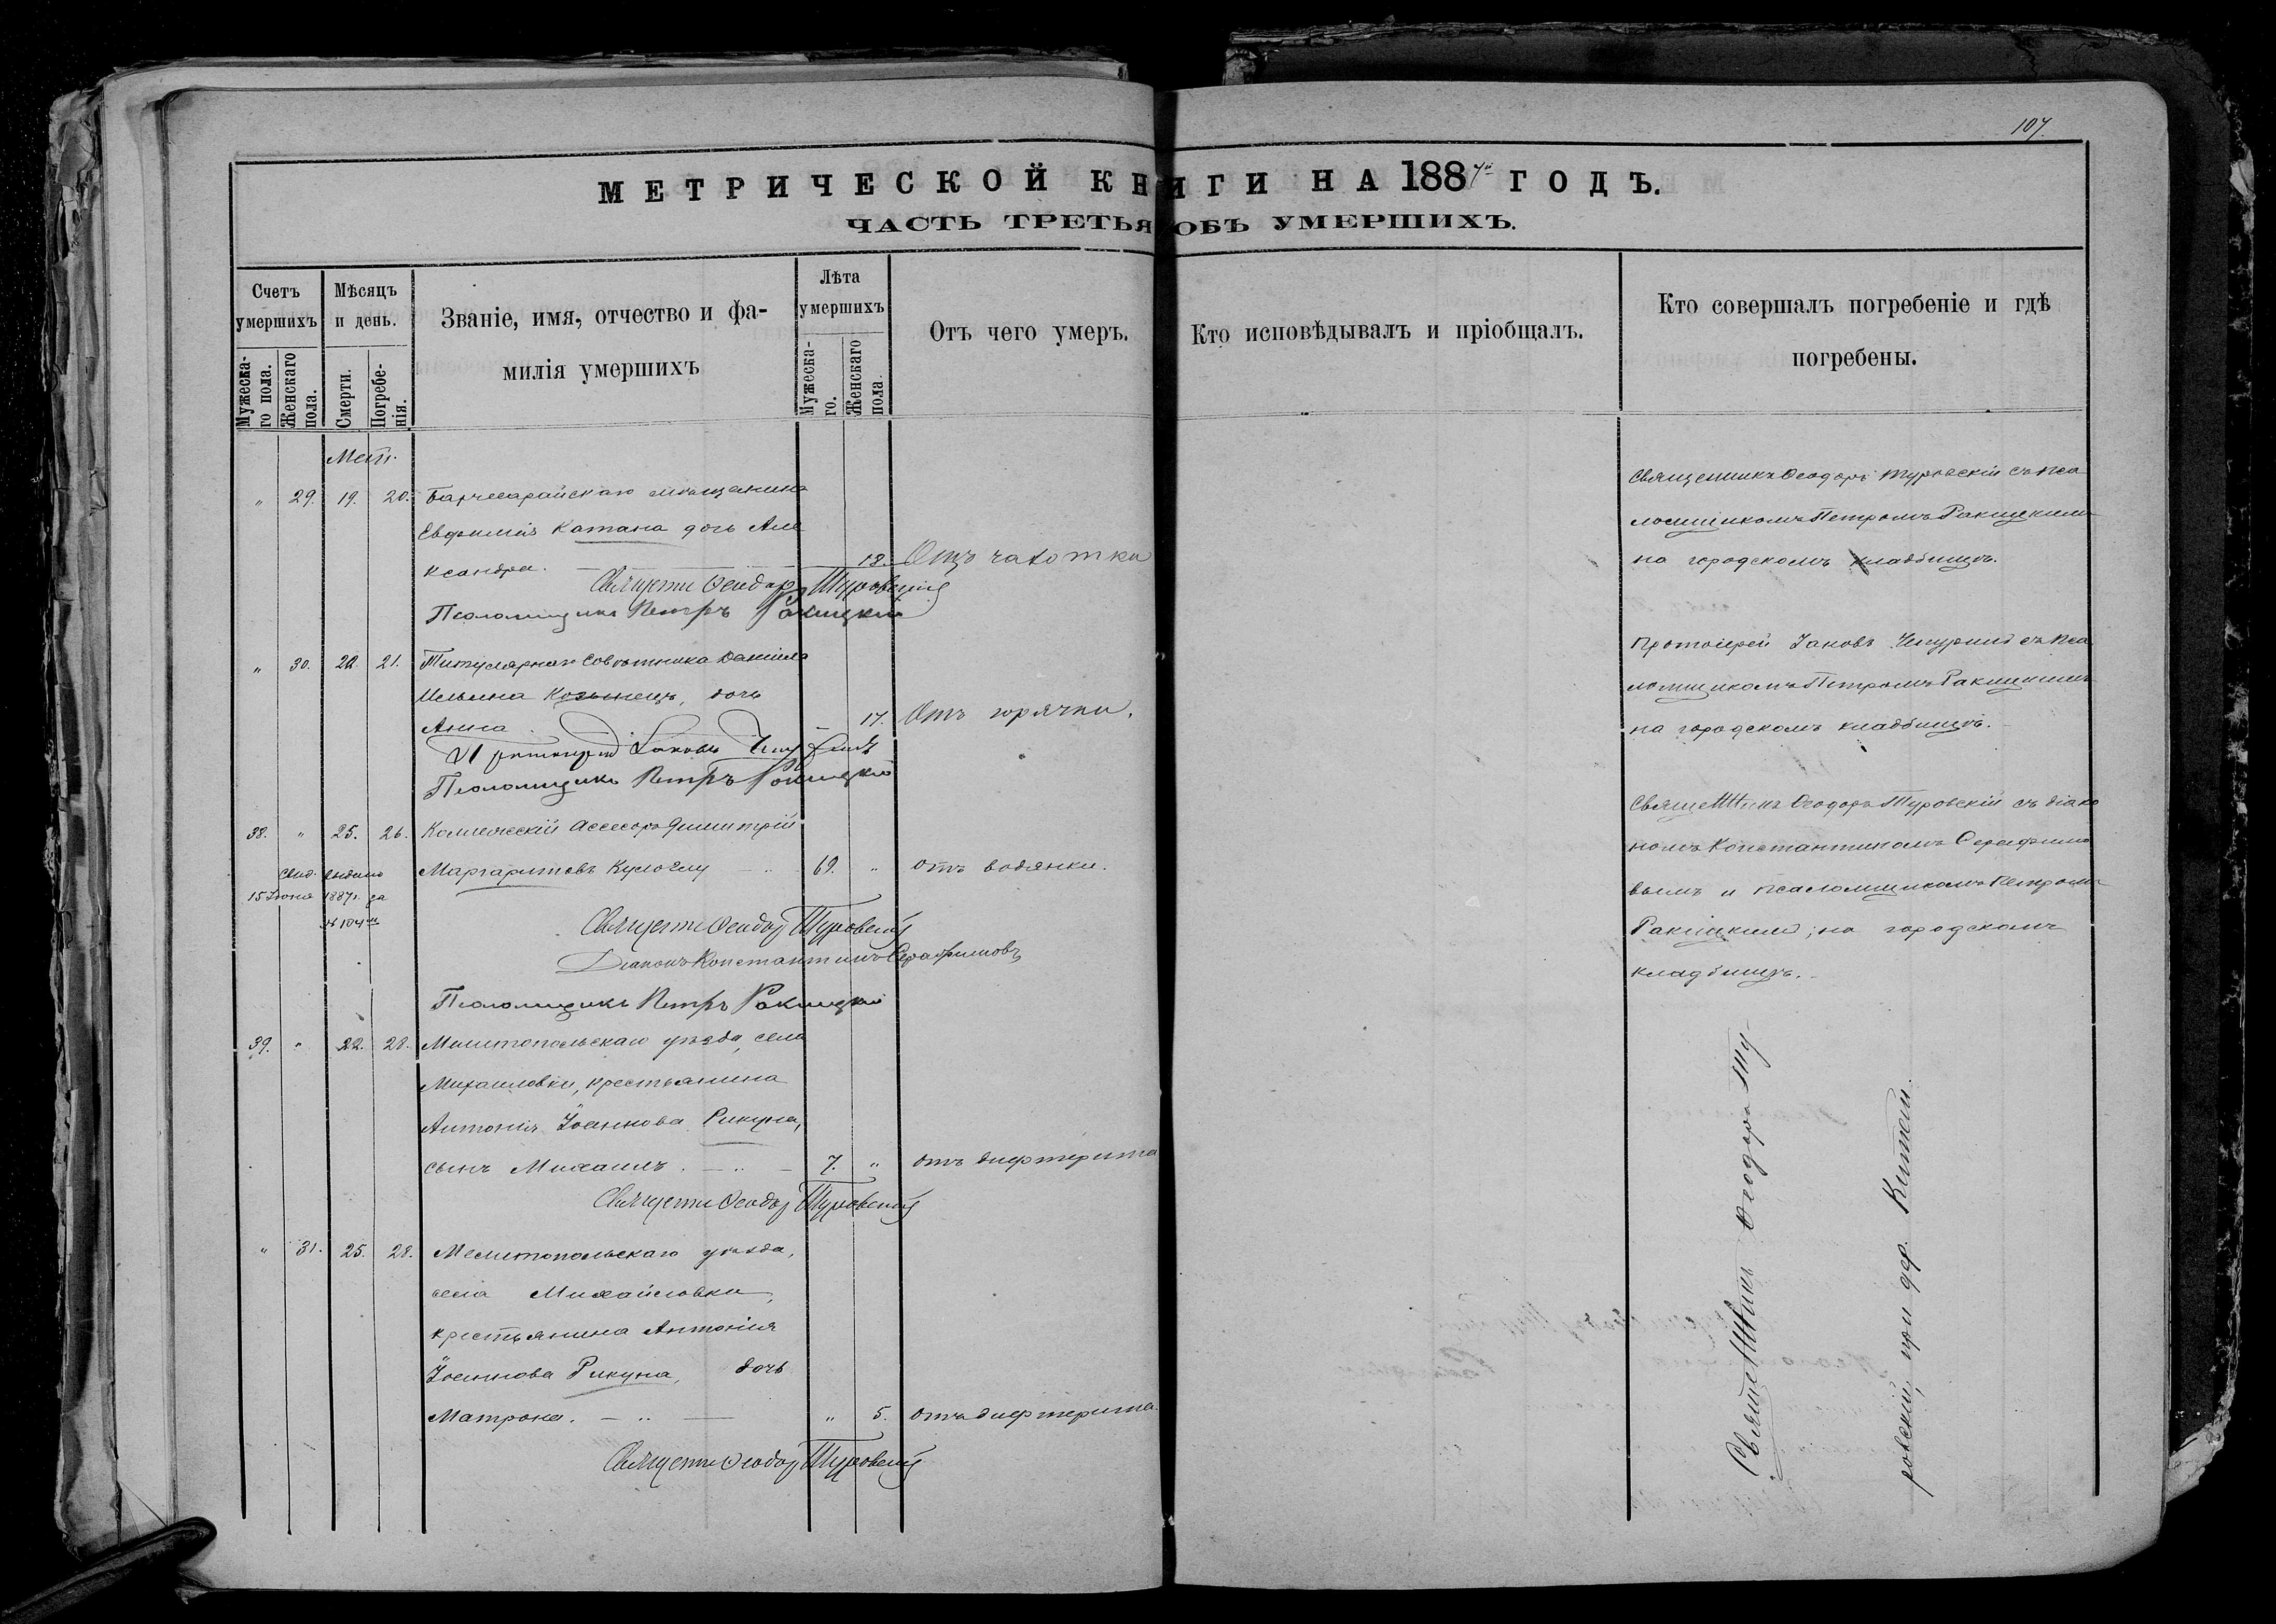 107.
МЕТРИЧЕСКОЙ КНИГИ НА 1887й ГОДЪ.
ЧАСТЬ ТРЕТЬЯ ОБЪ УМЕРШИХЪ.
Счетъ умершихъ
Мужеска-
го пола.
Женскаго
пола.
Мѣсяцъ
и день.
Смерти.
Погребе-
нія.
Званіе, имя, отчество и фа-
милія умершихъ
Лѣта
умершихъ
Мужеска-
го.
Женскаго
пола.
Отъ чего умеръ.
Кто исповѣдывалъ и пріобщалъ.
Кто совершалъ погребеніе и гдѣ
погребены.
" 29. 19. 20. Бахчисарайскаго мѣщанина
Евфимія Катана дочь Але
ксандра. 18. Отъ чахотки
Священникъ Ѳеодоръ Туровскій съ пса
ломщикомъ Петромъ Ракицкимъ
на городскомъ кладбищѣ.
Священ Ѳеодоръ Туровскій
Псаломщикъ Петръ Ракицкій
" 30. 20. 21. Титулярнаго Совѣтника Даніила
Ильина дочь
Анна 17. Отъ горячки.
Протоіерей Іаковъ Чепуринъ съ пса
ломщикомъ Петромъ Ракицкимъ
на городскомъ кладбищѣ.
Протоіерей Іаковъ Чепуринъ
Псаломщикъ Петръ Ракицкій
38. " 25. 26. Коллежскій Ассесоръ Димитрій
Маргаритовъ 69. " отъ водянки.
Свид. выдано
15 Іюня 1887 г. за
№ 104м
СвящеННикъ Ѳеодоръ Туровскій съ діако
номъ Константиномъ Серафимо
вымъ и псаломщикомъ Петромъ
Ракицкимъ; на городскомъ
кладбищѣ.
Священ Ѳеодоръ Туровскій
Діаконъ Константинъ Серафимовъ
Псаломщикъ Петръ Ракицкій
39. " 22. 28. Мелитопольскаго уѣзда, села
Михайловки, крестьянина
Антонія Іоаннова Рикуна,
сынъ Михаилъ. 7. " отъ дифтерита
Священ Ѳеодоръ Туровскій
" 31. 25. 28. Мелитопольскаго уѣзда,
села Михайловки,
крестьянина Антонія
Іоаннова Рикуна, дочь
Матрона. " 5. отъ дифтерита
Священ Ѳеодоръ Туровскій
СвящеННикъ Ѳеодоръ Ту-
ровскій, при дер. Китаи.